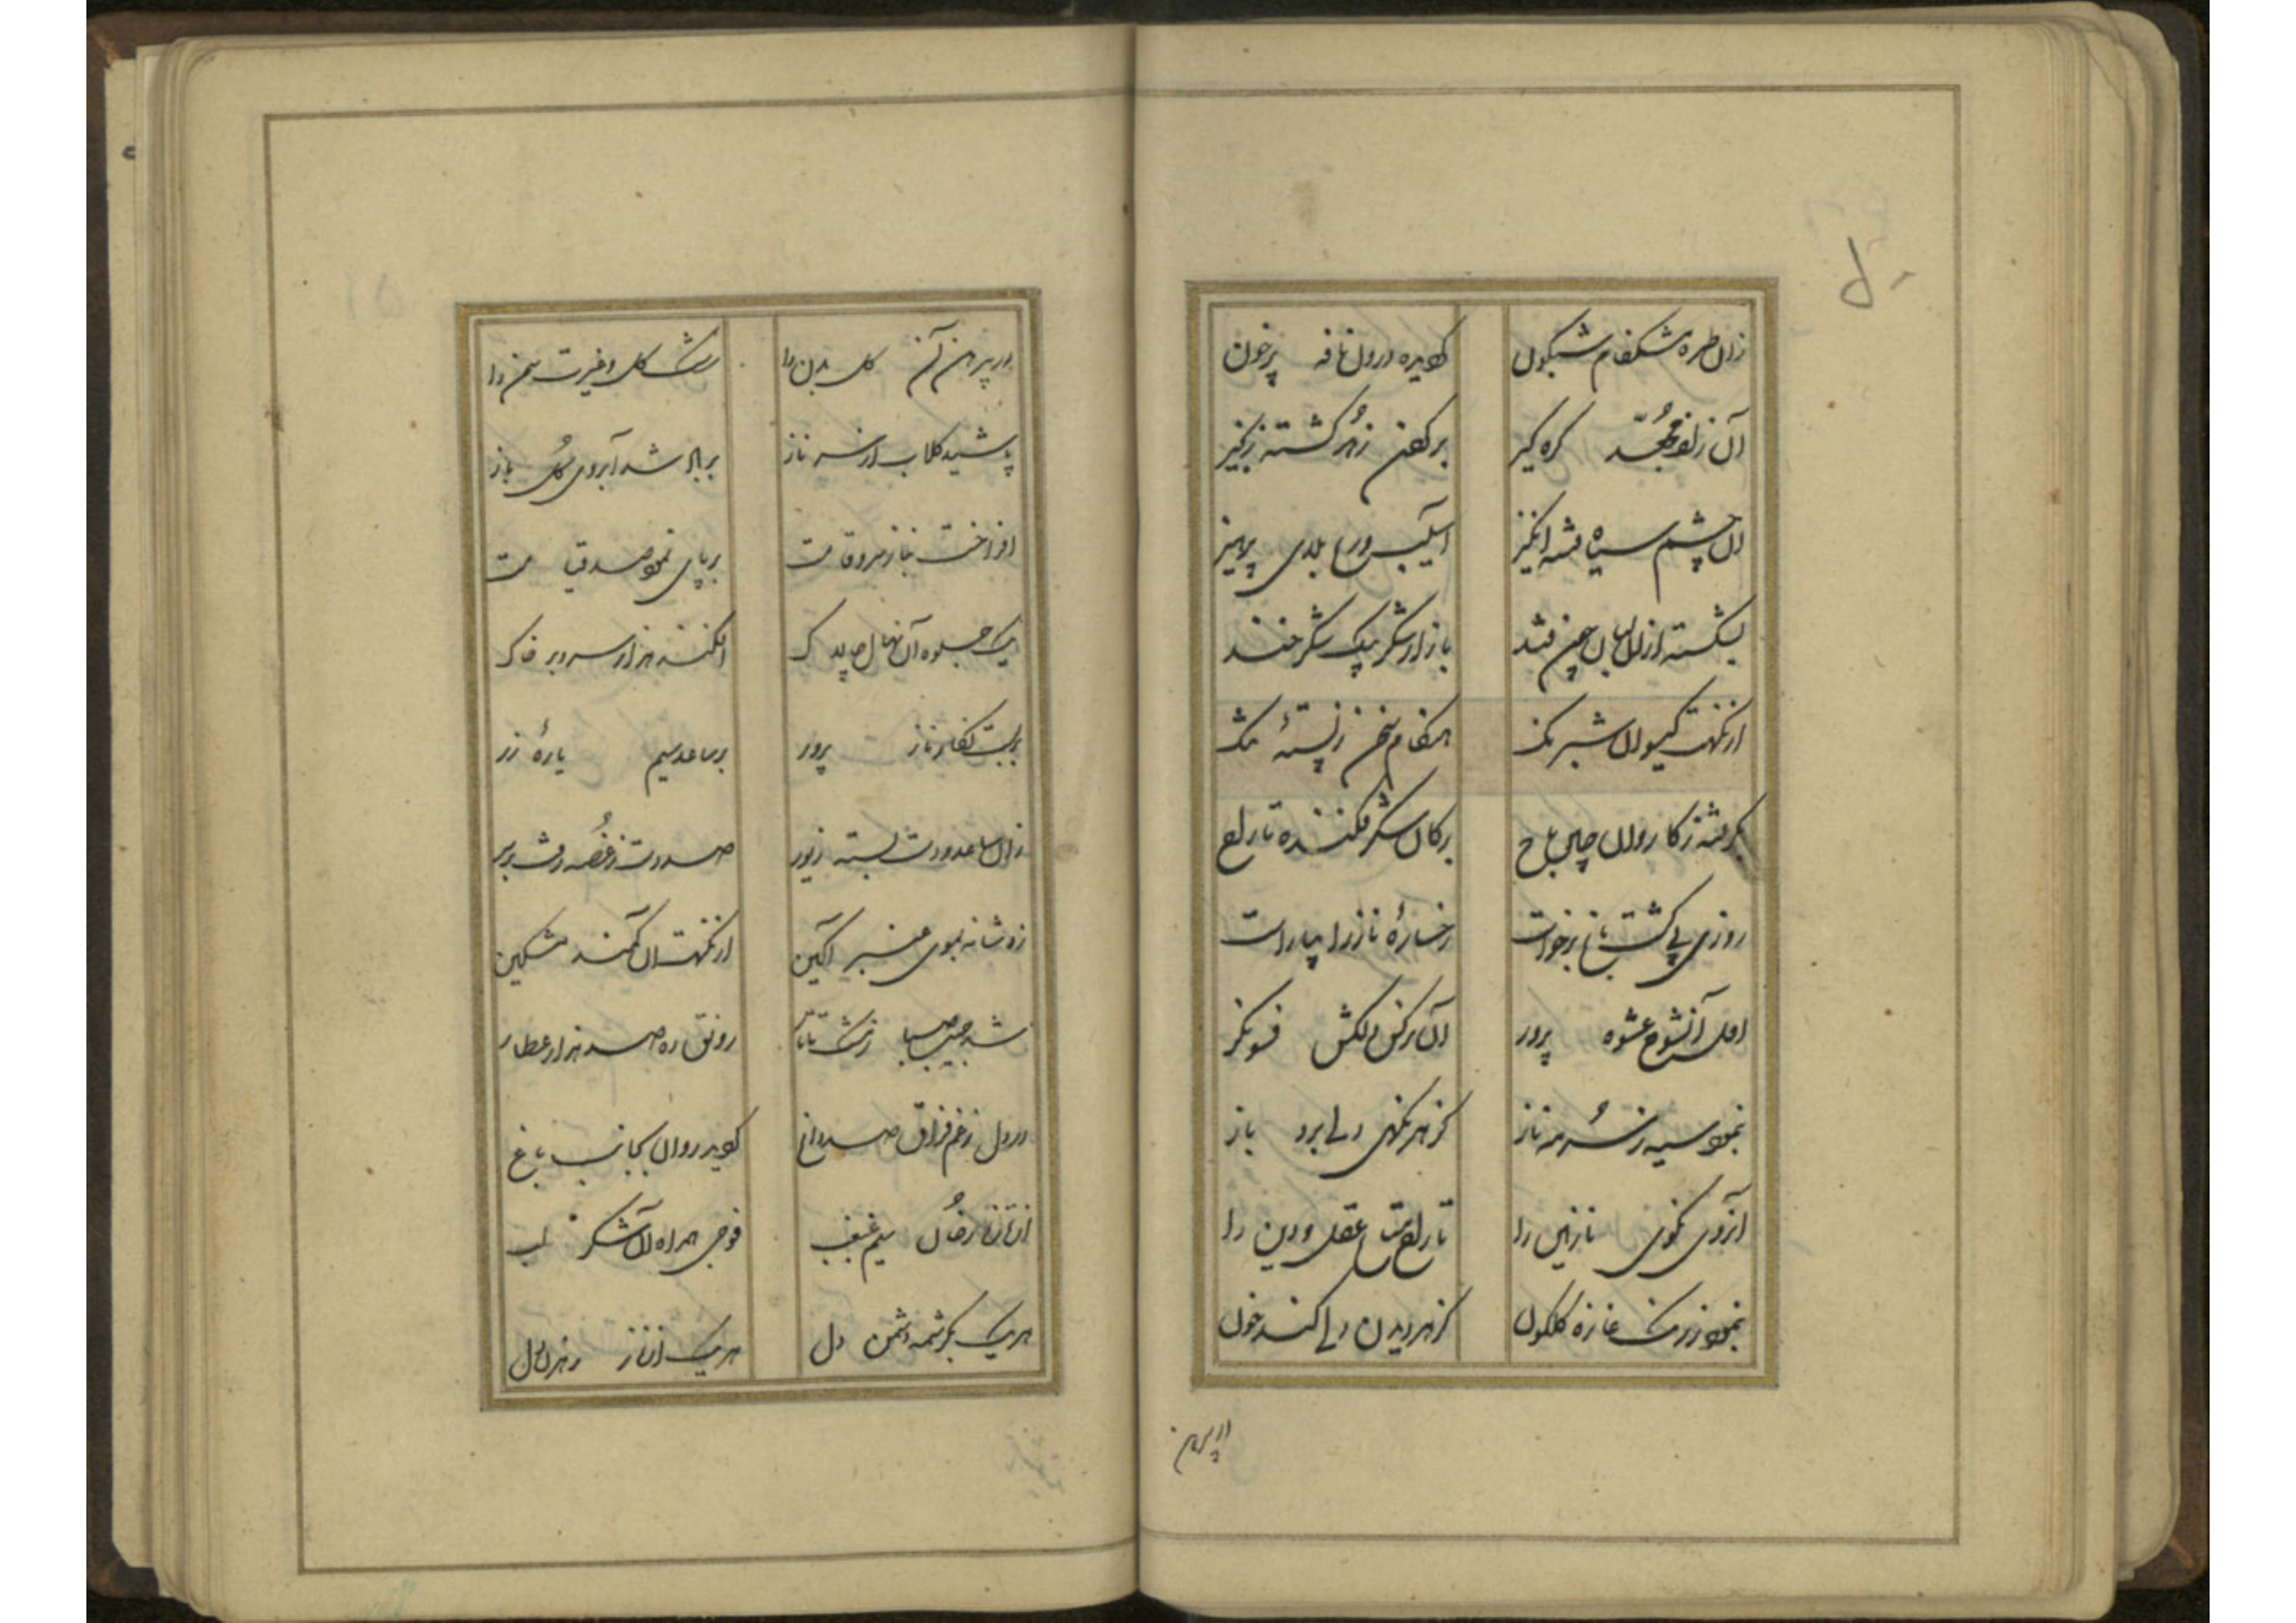 ۵۰
زان طره مشکفام شبگون گردیده درون نافه پرخون
آن زلف مجعد گره گیر بر گردن زهد گشته زنجیر
آن چشم سیاه فتنه انگیز آسیب ورع بلای پرهیز
بشکسته ازان لبان چون قند بازار شکر بیک شکرخند
از نکهت گیسوان شبرنگ هنگام سخن ز پسته تنگ
بگرفته ز کاروان چین باج بر کان شکر فکنده تاراج
روزی پی گشت باغ برخواست رخساره ناز را بیاراست
اول آنشوخ عشوه پرور آن نرگس دلکش فسونگر
نمود سیه ز سرمه ناز کز هر نگهی دلی برد باز
آنروی نکوی نازنین را تاراج متاع عقل و دین را
نمود ز رنگ غازه گلگون کز هر دیدن دلی کند خون
در پیرهن
در پیرهن آن گل بدن را رشک گل و غیرت سمن را
پاشید گلاب از سر ناز بر باد شد آبروی گل باز
افراخت بناز سرو قامت بر پای نمود صد قیامت
یک جلوه آن نهال چالاک افکند هزار سرو بر خاک
بربست نگار ناز پرور بر ساعد سیم یاره زر
زان ساعد و دست بسته زیور صد دست ز غصه رفت بر سر
زد شانه بموی عنبر آگین از نکهت آن کمند مشکین
شد جیب صبا ز مشک تاتار رونق ده صد هزار عطار
در دل ز غم فراق صد داغ گردید روان بجانب باغ
از تازه رخان سیم غبغب فوجی همراه آن شکر لب
هر یک بکرشمه دشمن دل هر یک از ناز رهزن دل